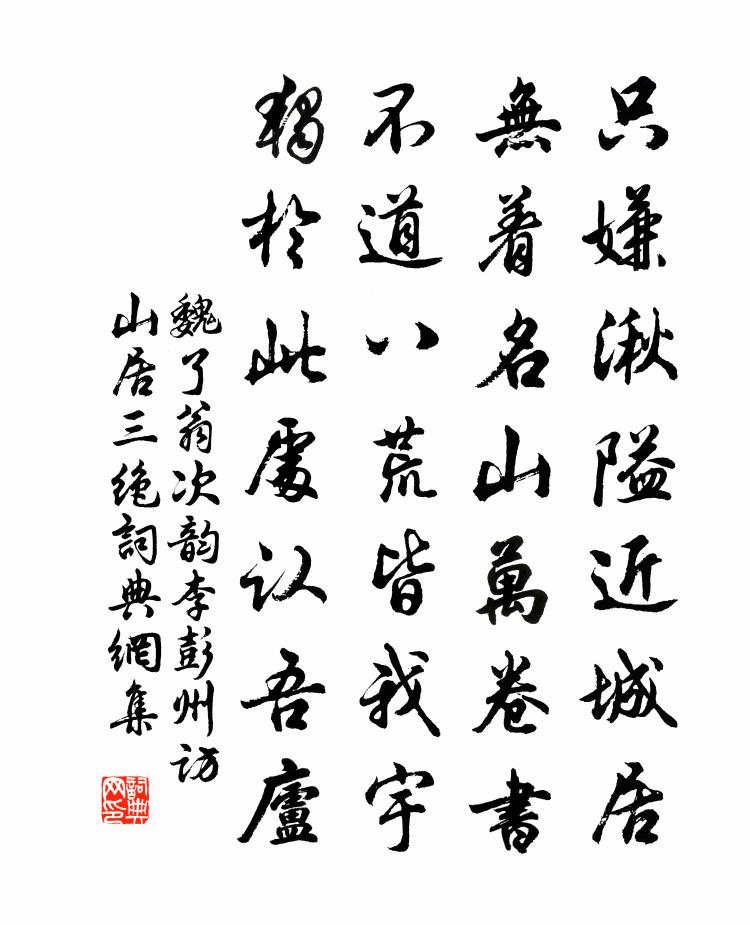 只嫌湫隘近城居
無着名山萬卷書
不道八荒皆我宇
獨於此處认吾廬
魏了翁次韵李彭州访
山居三绝詞典網集
詞典网印